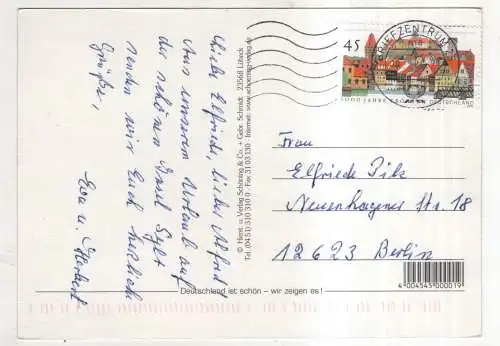 Liebe Elfriede, lieber Alfred!
Aus unserem Urlaub auf
der schönen Insel Sylt
senden wir Euch herzliche
Grüße,
Eva u. Herbert
© Herst. u. Verlag Schöning & Co. + Gebr. Schmidt, 23568 Lübeck
Tel. (04 51) 310 310 0 · Fax 31 03 130 · Internet: www.schoening-verlag.de
45
BRIEFZENTRUM
1000 JAHRE
DEUTSCHLAND
Frau
Elfriede Pilz
Neuenhagener Str. 18
12623 Berlin
4 004543 000019
Deutschland ist schön – wir zeigen es!